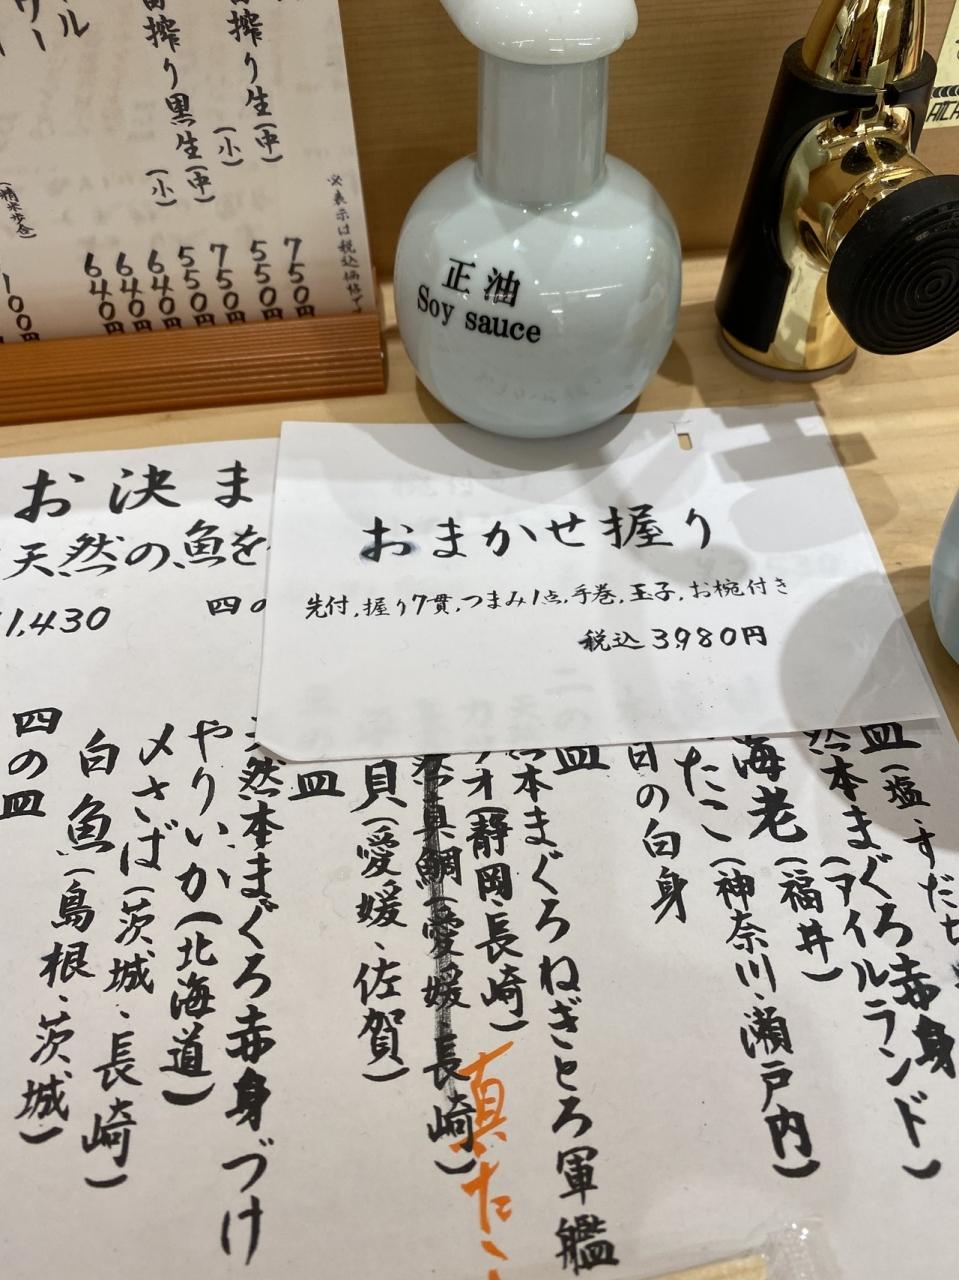 搾り生(中)
(小)
搾り黒生(中)
(小)
ル
ワー
(精米歩合)
※表示は税込価格で
750円
550円
750円
550円
640円
640円
640円
100円
正油
Soy sauce
おまかせ握り
先付,握り7貫,つまみ1点,手巻,玉子,お椀付き
税込3,980円
お決ま
天然の魚を
1,430
四の
皿(塩・すだち
然本まぐろ赤身
(アイルランド)
海老(福井)
たこ(神奈川、瀬戸内)
日の白身
皿
本まぐろねぎとろ軍艦
オ(静岡・長崎)
真鯛(愛媛 長崎)
真たこ
貝(愛媛、佐賀)
皿
然本まぐろ赤身づけ
やりいか(北海道)
〆さば(茨城、長崎)
白魚(島根、茨城)
四の皿